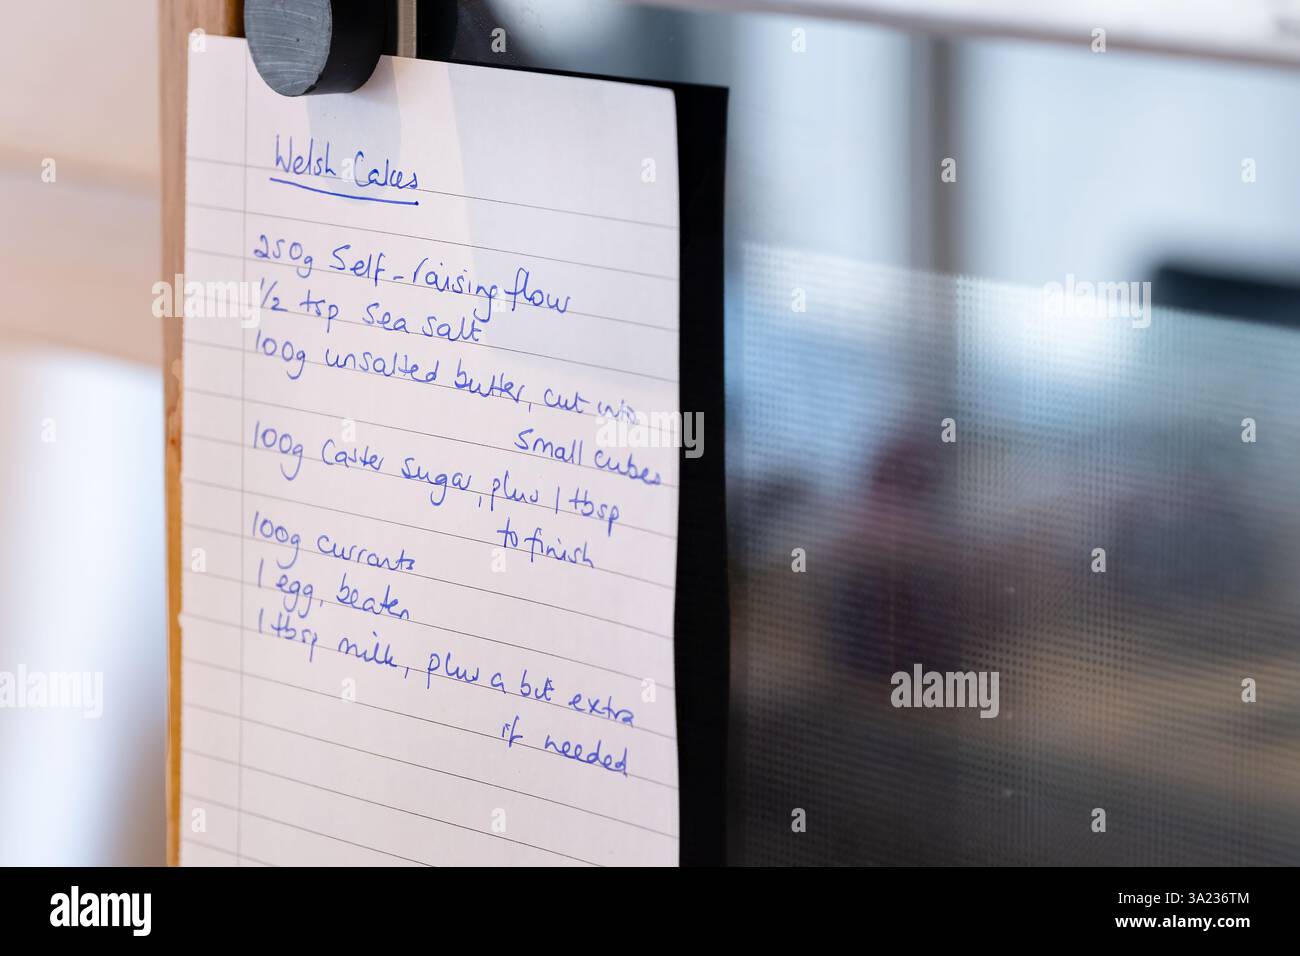 Welsh Cakes
250g Self-raising flour
1/2 tsp sea salt
100g unsalted butter, cut into
small cubes
100g caster sugar, plus 1 tbsp
to finish
100g currants
1 egg, beaten
1 tbsp milk, plus a bit extra
if needed
alamy
alamy
alamy
a
alamy
Image ID: 3A236TM
www.alamy.com